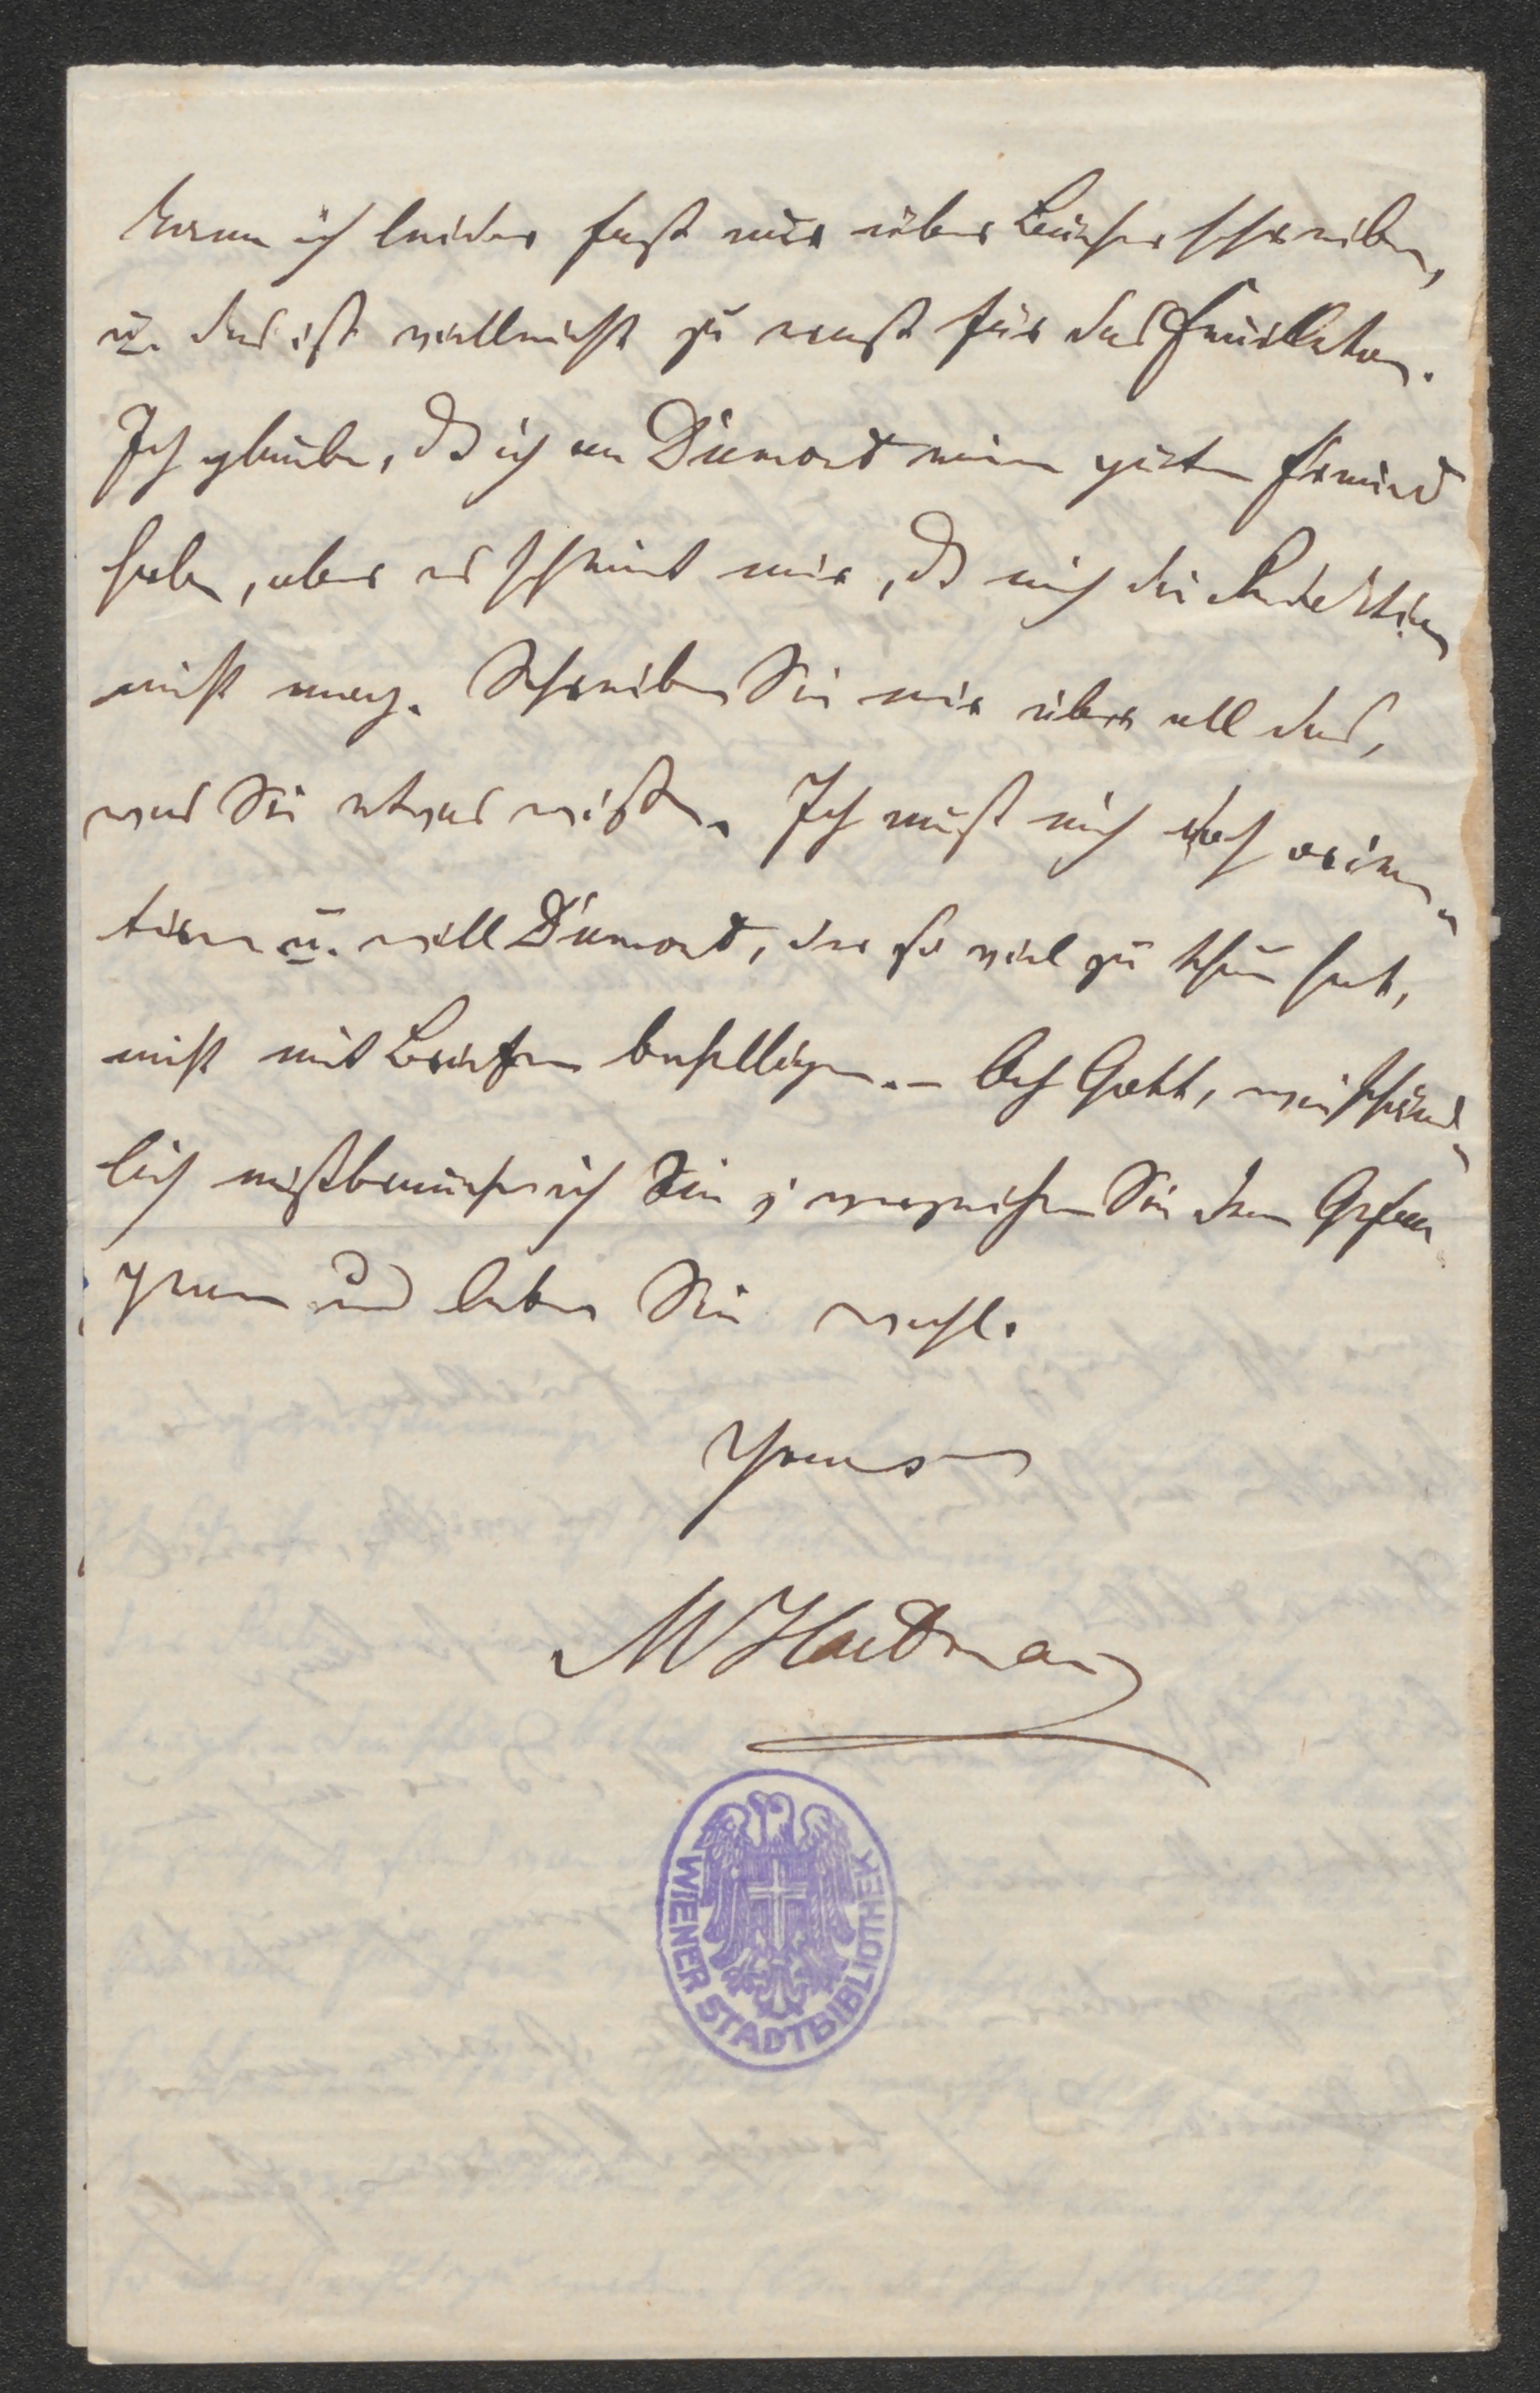 kann ich leider fast nur über Bücher schreiben,
u. das ist vielleicht zu ernst für das Feuilleton.
Ich glaube, dß ich an Dumont einen guten Freund
habe, aber es scheint mir, dß mich die Redaktion
nicht mag. Schreiben Sie mir über all das,
was Sie etwas wissen. Ich muß mich doch orien-
tiren u. will Dumont, der so viel zu thun hat,
nicht mit Briefen behelligen. – Ach Gott, wie schänd-
lich mißbrauche ich Sie; verzeihen Sie dem
und leben Sie wohl.
Ihren
MHartmann
WIENER STADTBIBLIOTHEK